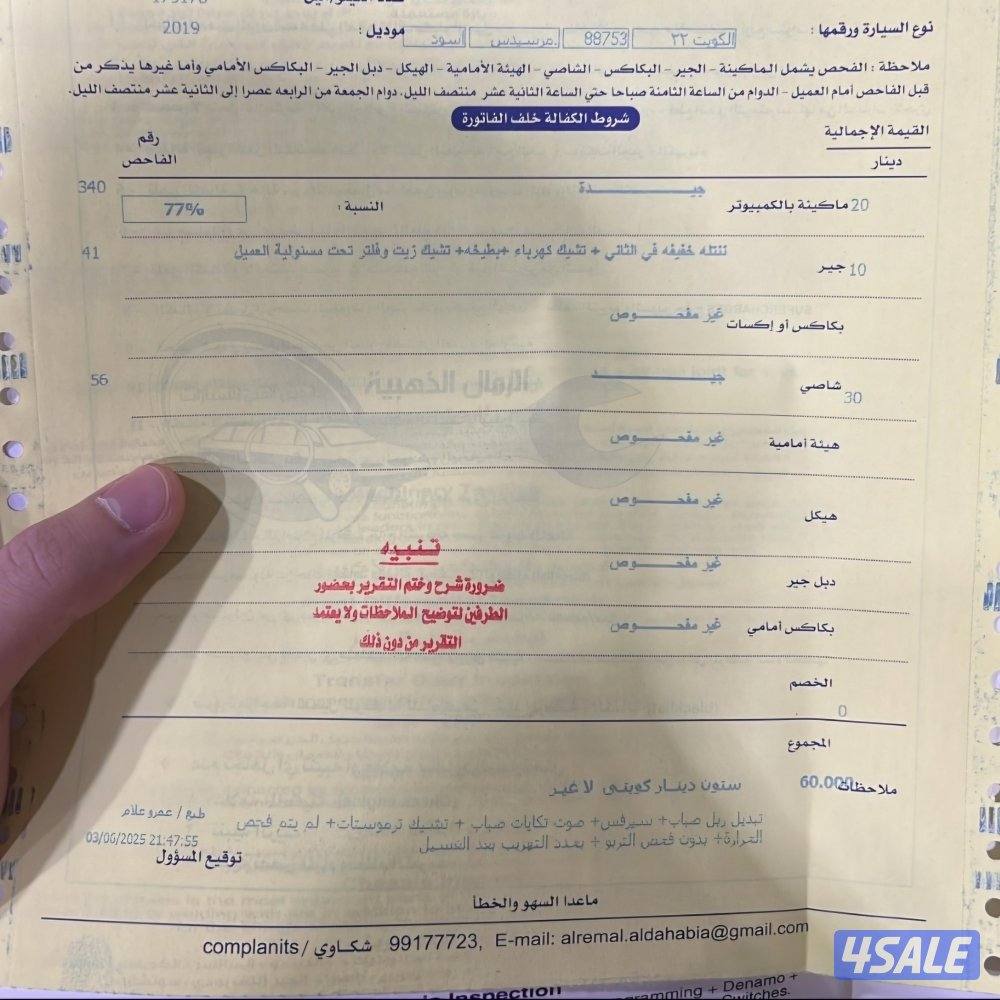 نوع السيارة ورقمها : الكويت ٢٢ 88753 مرسيدس أسود موديل : 2019
ملاحظة : الفحص يشمل الماكينة - الجير - البكاكس - الشاصي - الهيئة الأمامية - الهيكل - دبل الجير - البكاكس الأمامي وأما غيرها يذكر من
قبل الفاحص أمام العميل - الدوام من الساعة الثامنة صباحا حتي الساعة الثانية عشر منتصف الليل. دوام الجمعة من الرابعه عصرا إلى الثانية عشر منتصف الليل.
شروط الكفالة خلف الفاتورة
القيمة الإجمالية
دينار
رقم
الفاحص
جيــــــــدة
340
20 ماكينة بالكمبيوتر
النسبة :
77%
10 جير
نتتله خفيفه في الثاني + تشيك كهرباء +بطيخه+ تشيك زيت وفلتر تحت مسئولية العميل
41
بكاكس أو إكسات
غير مفحـــــوص
30 شاصي
جيـــــــد
56
الرمال الذهبية
هيئة أمامية
غير مفحـــــوص
هيكل
غير مفحـــــوص
دبل جير
غير مفحـــــوص
بكاكس أمامي
غير مفحـــــوص
تنبيه
ضرورة شرح وختم التقرير بحضور
الطرفين لتوضيح الملاحظات ولا يعتمد
التقرير من دون ذلك
الخصم
0
المجموع
60.000
ستون دينار كويتى لا غير
ملاحظات
تبديل ربل صباب+ سيرفس+ صوت تكايات صباب + تشيك ترموستات+ لم يتم فحص
الحرارة+ بدون فحص التربو + يحدد التهريب بعد الغسيل
طبع / عمرو علام
03/06/2025 21:47:55
توقيع المسؤول
ماعدا السهو والخطأ
complanits / شكاوي 99177723, E-mail: alremal.aldahabia@gmail.com
4SALE
Inspection
gramming + Denamo +
Switches.